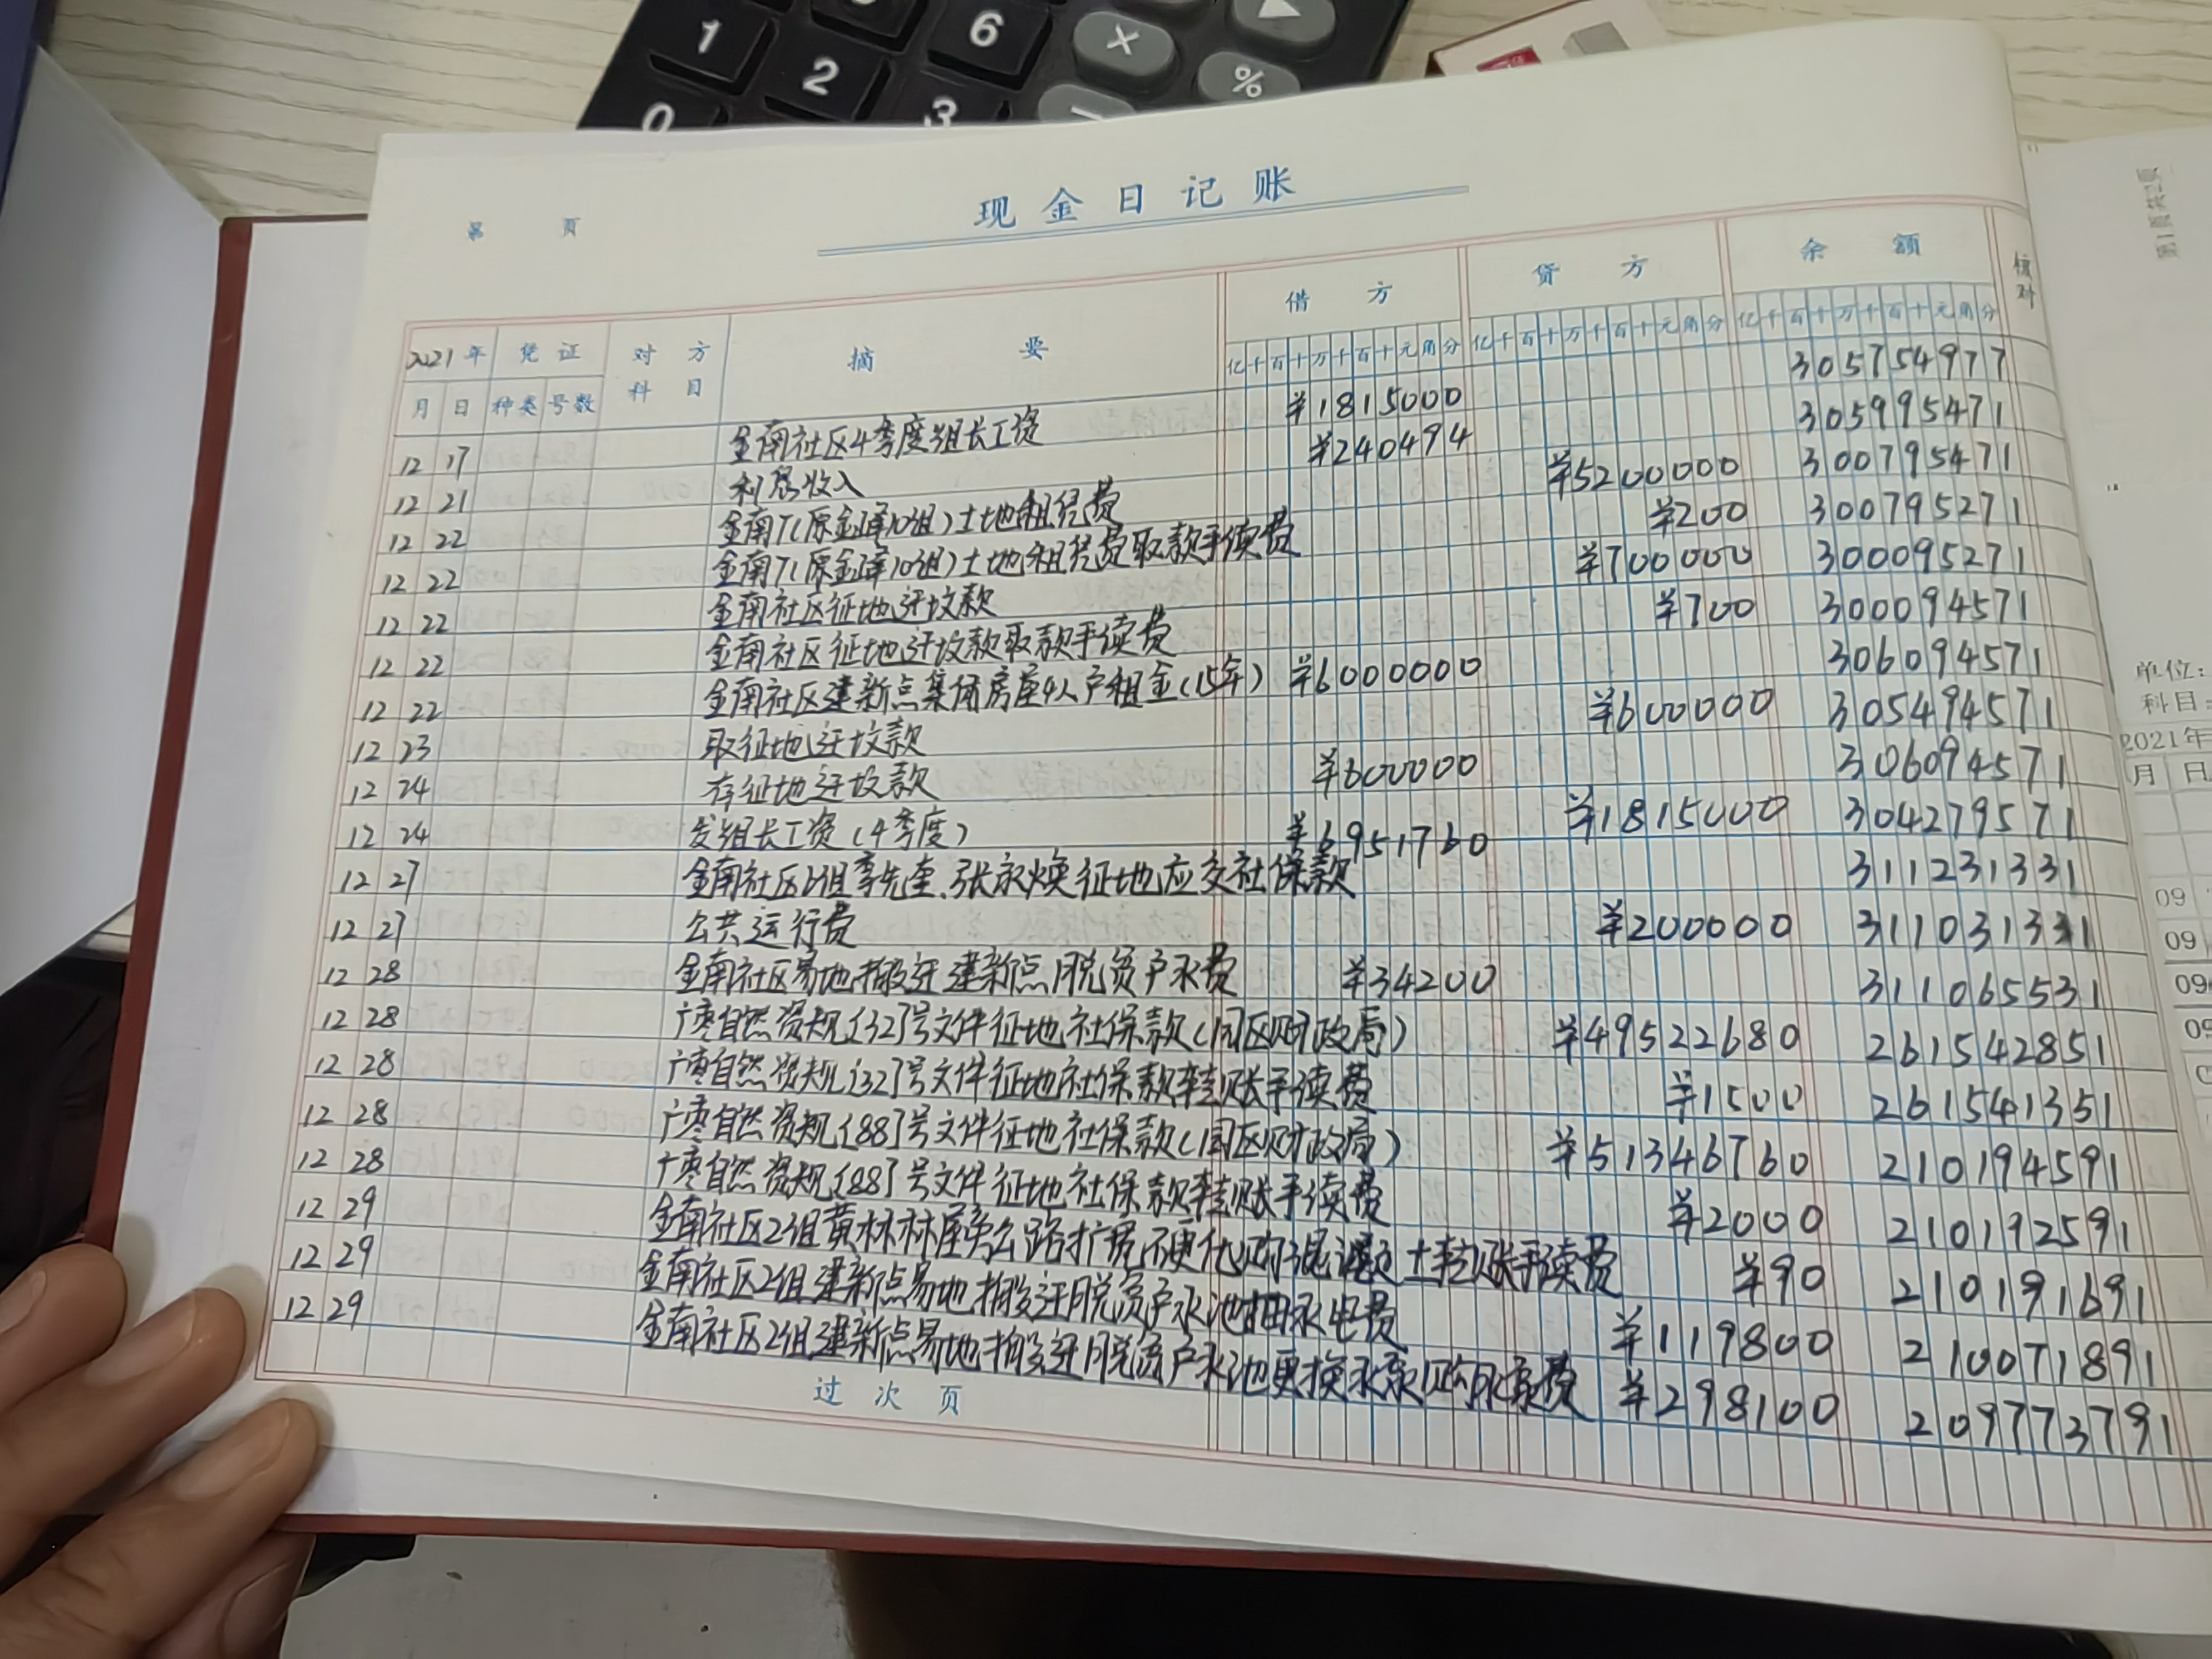 1 2 6 × %
0 3 −
现金日记账
第 页
2021年 凭证 对方 摘要 借方 贷方 余额 核对
月 日 种类 号数 科目 亿千百十万千百十元角分 亿千百十万千百十元角分 亿千百十万千百十元角分
12 17 金南社区4季度组长工资 ¥1815000 305754977
12 21 利息收入 ¥240494 305995471
12 22 金南7(原金峰10组)土地租赁费 ¥5200000 300795471
12 22 金南7(原金峰10组)土地租赁费取款手续费 ¥200 300795271
12 22 金南社区征地迁坟款 ¥700000 300095271
12 22 金南社区征地迁坟款取款手续费 ¥700 300094571
12 22 金南社区建新点集体房屋4人户租金(15年) ¥6000000 306094571
12 23 取征地迁坟款 ¥600000 305494571
12 24 存征地迁坟款 ¥600000 306094571
12 24 发组长工资(4季度) ¥1815000 304279571
12 27 金南社区6组李先奎、张永焕征地应交社保款 ¥6951760 311231331
12 27 公共运行费 ¥200000 311031331
12 28 金南社区易地搬迁建新点脱贫户水费 ¥34200 311065531
12 28 广枣自然资规〔32〕号文件征地社保款(园区财政局) ¥49522680 261542851
12 28 广枣自然资规〔32〕号文件征地社保款转账手续费 ¥1500 261541351
12 28 广枣自然资规〔88〕号文件征地社保款(园区财政局) ¥51346760 210194591
12 28 广枣自然资规〔88〕号文件征地社保款转账手续费 ¥2000 210192591
12 29 金南社区2组黄林林屋旁公路扩宽硬化购混凝土转账手续费 ¥90 210191691
12 29 金南社区2组建新点易地搬迁脱贫户水池抽水电费 ¥119800 210071891
12 29 金南社区2组建新点易地搬迁脱贫户水池更换水泵购水泵费 ¥298100 209773791
过次页
第1页 共12页
单位:
科目:
2021年
月 日
09
09
09